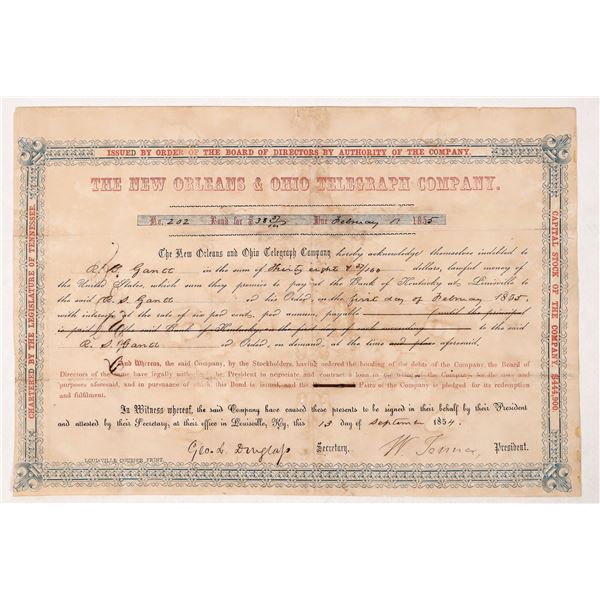 ISSUED BY ORDER OF THE BOARD OF DIRECTORS BY AUTHORITY OF THE COMPANY.
CHARTERED BY THE LEGISLATURE OF TENNESSEE.
CAPITAL STOCK OF THE COMPANY, $424,900
THE NEW ORLEANS & OHIO TELEGRAPH COMPANY.
No. 202 Bond for $38 Due February 1 1855
The New Orleans and Ohio Telegraph Company hereby acknowledge themselves indebted to
R. S. Gantt in the sum of Thirty eight & /100 dollars, lawful money of
the United States, which sum they promise to pay at the Bank of Kentucky at Louisville to
the said R. S. Gantt or his Order, on the first day of February 1855,
with interest at the rate of six per cent. per annum, payable until the principal
is paid at the said Bank of Kentucky on the first day of each succeeding to the said
R. S. Gantt or Order, on demand, at the time and place aforesaid.
And Whereas, the said Company, by the Stockholders, having ordered the bonding of the debts of the Company, the Board of
Directors of the same have legally authorized the President to negotiate and contract a loan in the Company for the uses and
purposes aforesaid, and in pursuance of which this Bond is issued, and the Faith of the Company is pledged for its redemption
and fulfilment.
In Witness whereof, the said Company have caused these presents to be signed in their behalf by their President
and attested by their Secretary, at their office in Louisville, Ky., this 13 day of September 1854.
Geo. L. Douglass Secretary. W. Tanner President.
LOUISVILLE COURIER PRINT.